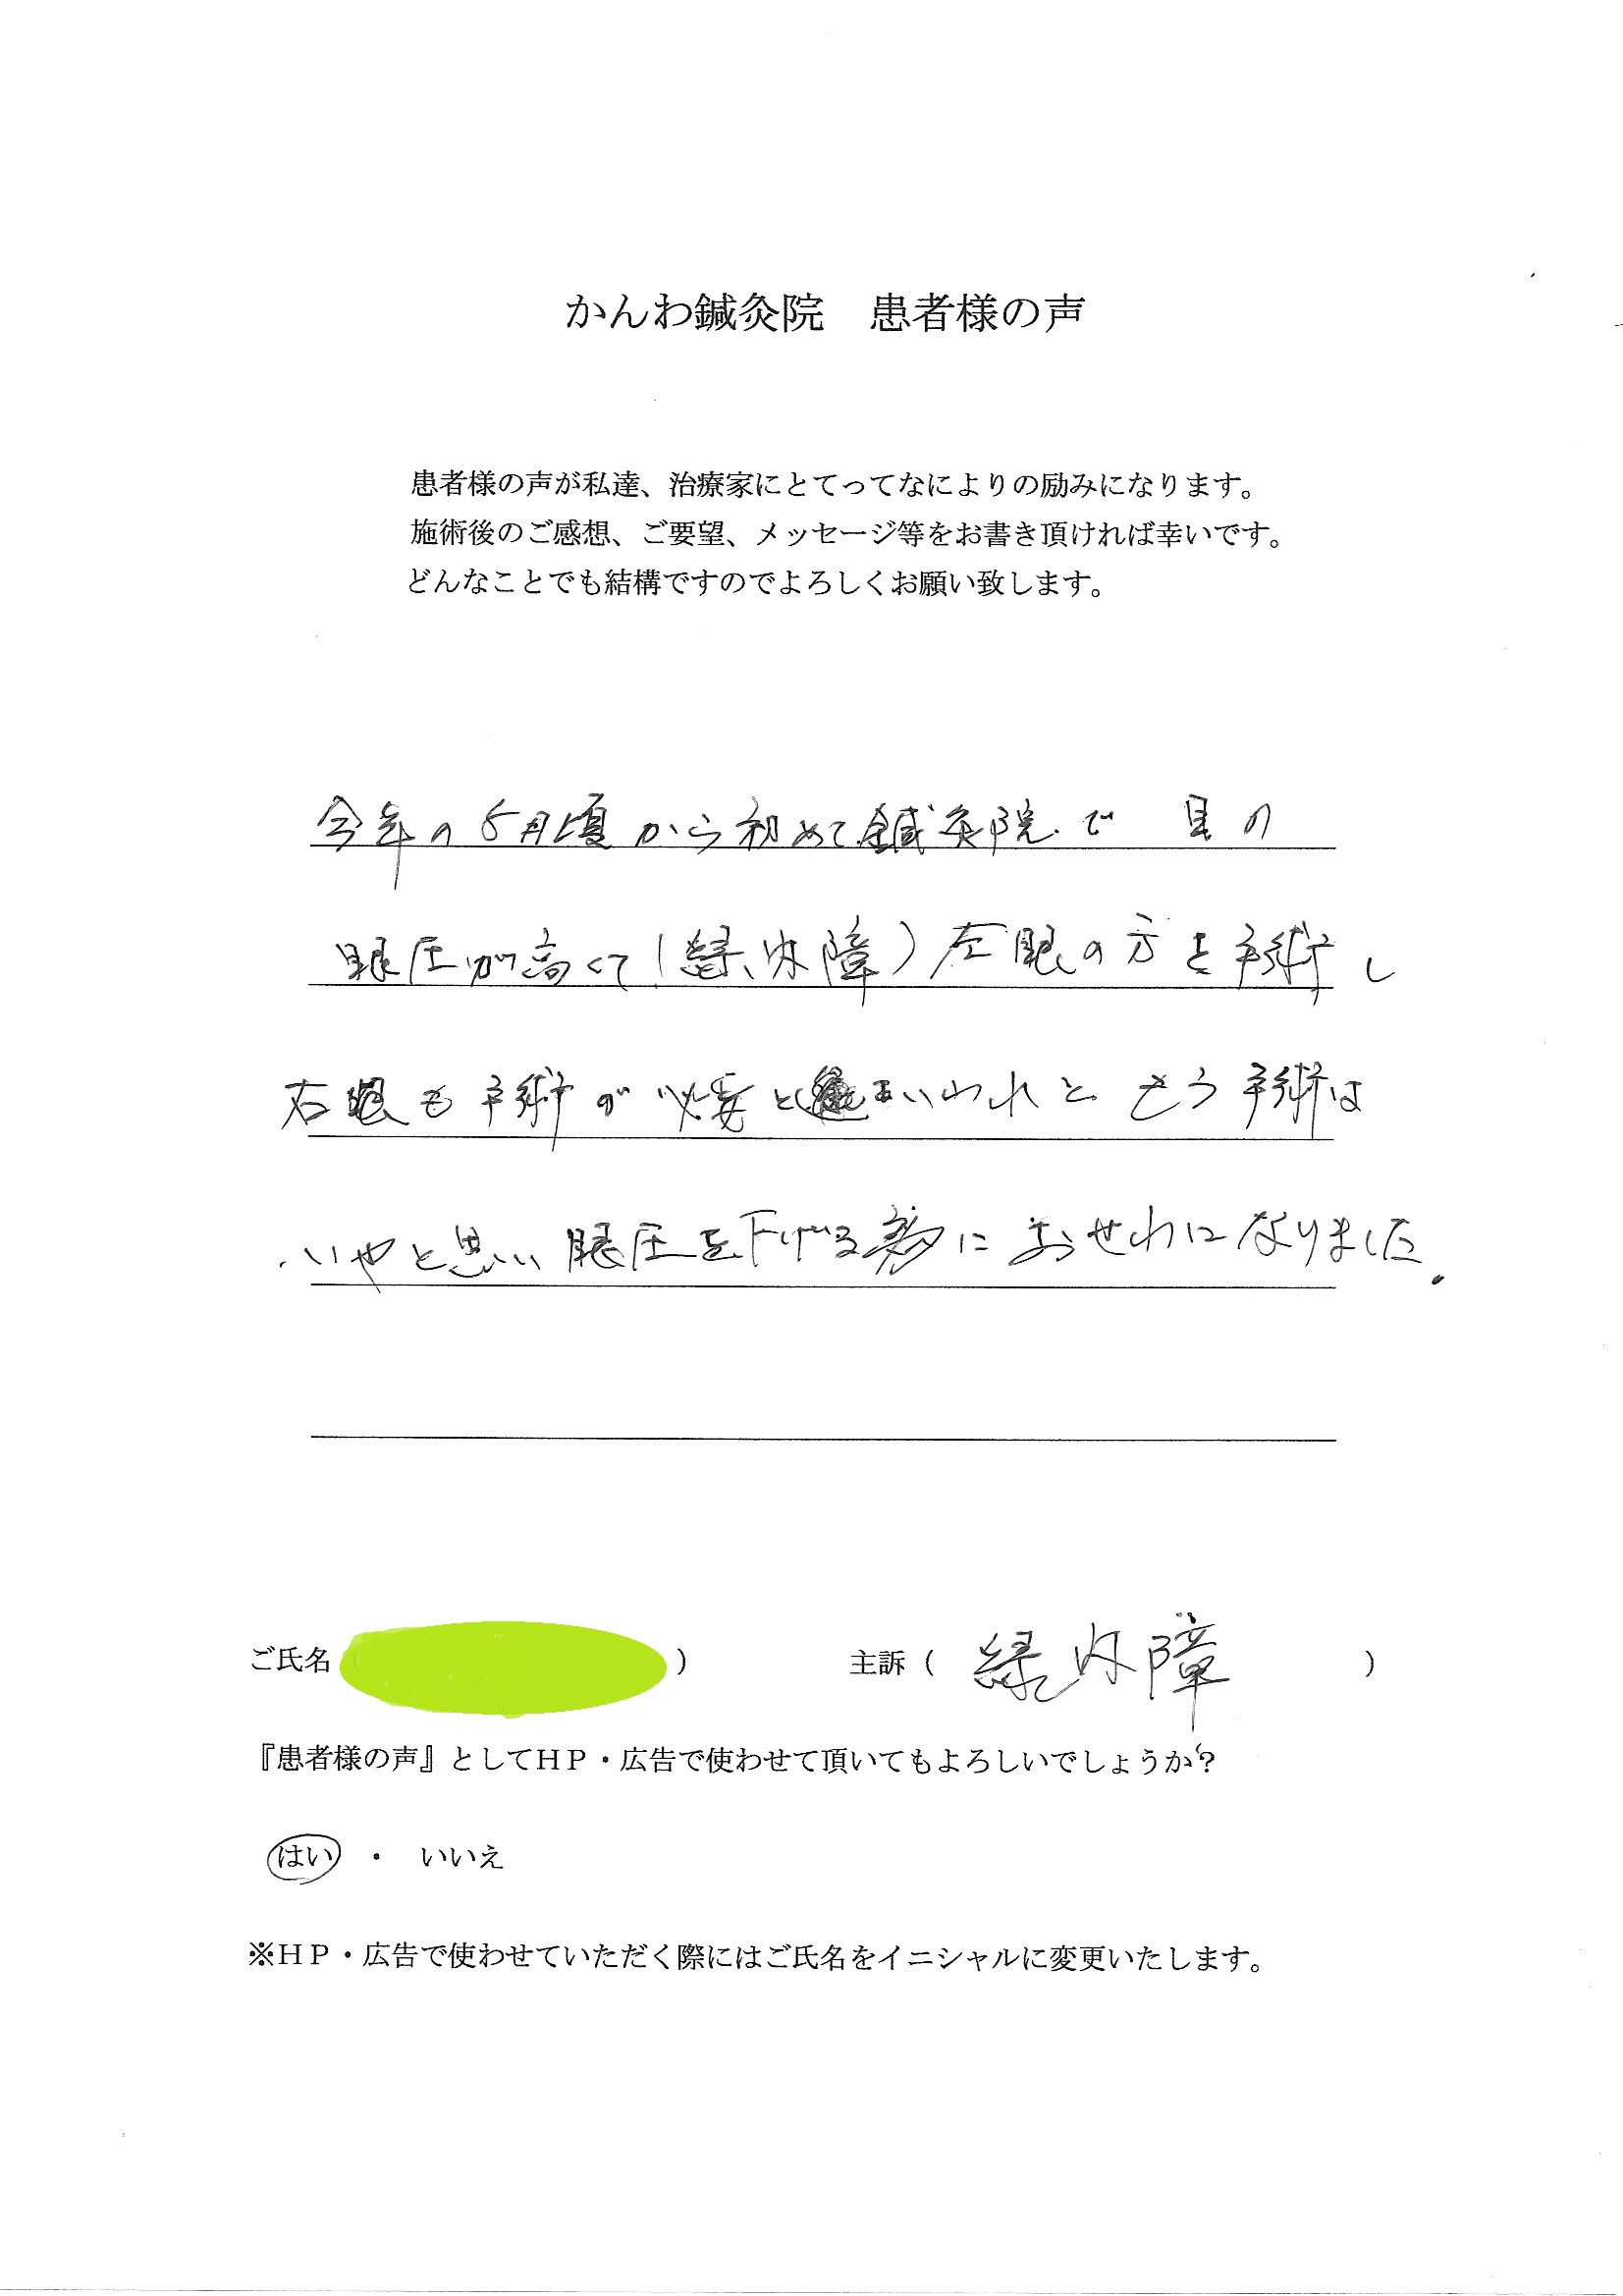 かんわ鍼灸院　患者様の声
患者様の声が私達、治療家にとてってなによりの励みになります。
施術後のご感想、ご要望、メッセージ等をお書き頂ければ幸いです。
どんなことでも結構ですのでよろしくお願い致します。
今年の5月頃から初めて鍼灸院で 目の
眼圧が高くて(緑内障)左眼の方を手術し
右眼も手術が必要と いわれと もう手術は
いやと思い 眼圧を下げる為に おせわになりました.
ご氏名（　）　主訴（ 緑内障 ）
『患者様の声』としてＨＰ・広告で使わせて頂いてもよろしいでしょうか？
はい ・ いいえ
※ＨＰ・広告で使わせていただく際にはご氏名をイニシャルに変更いたします。